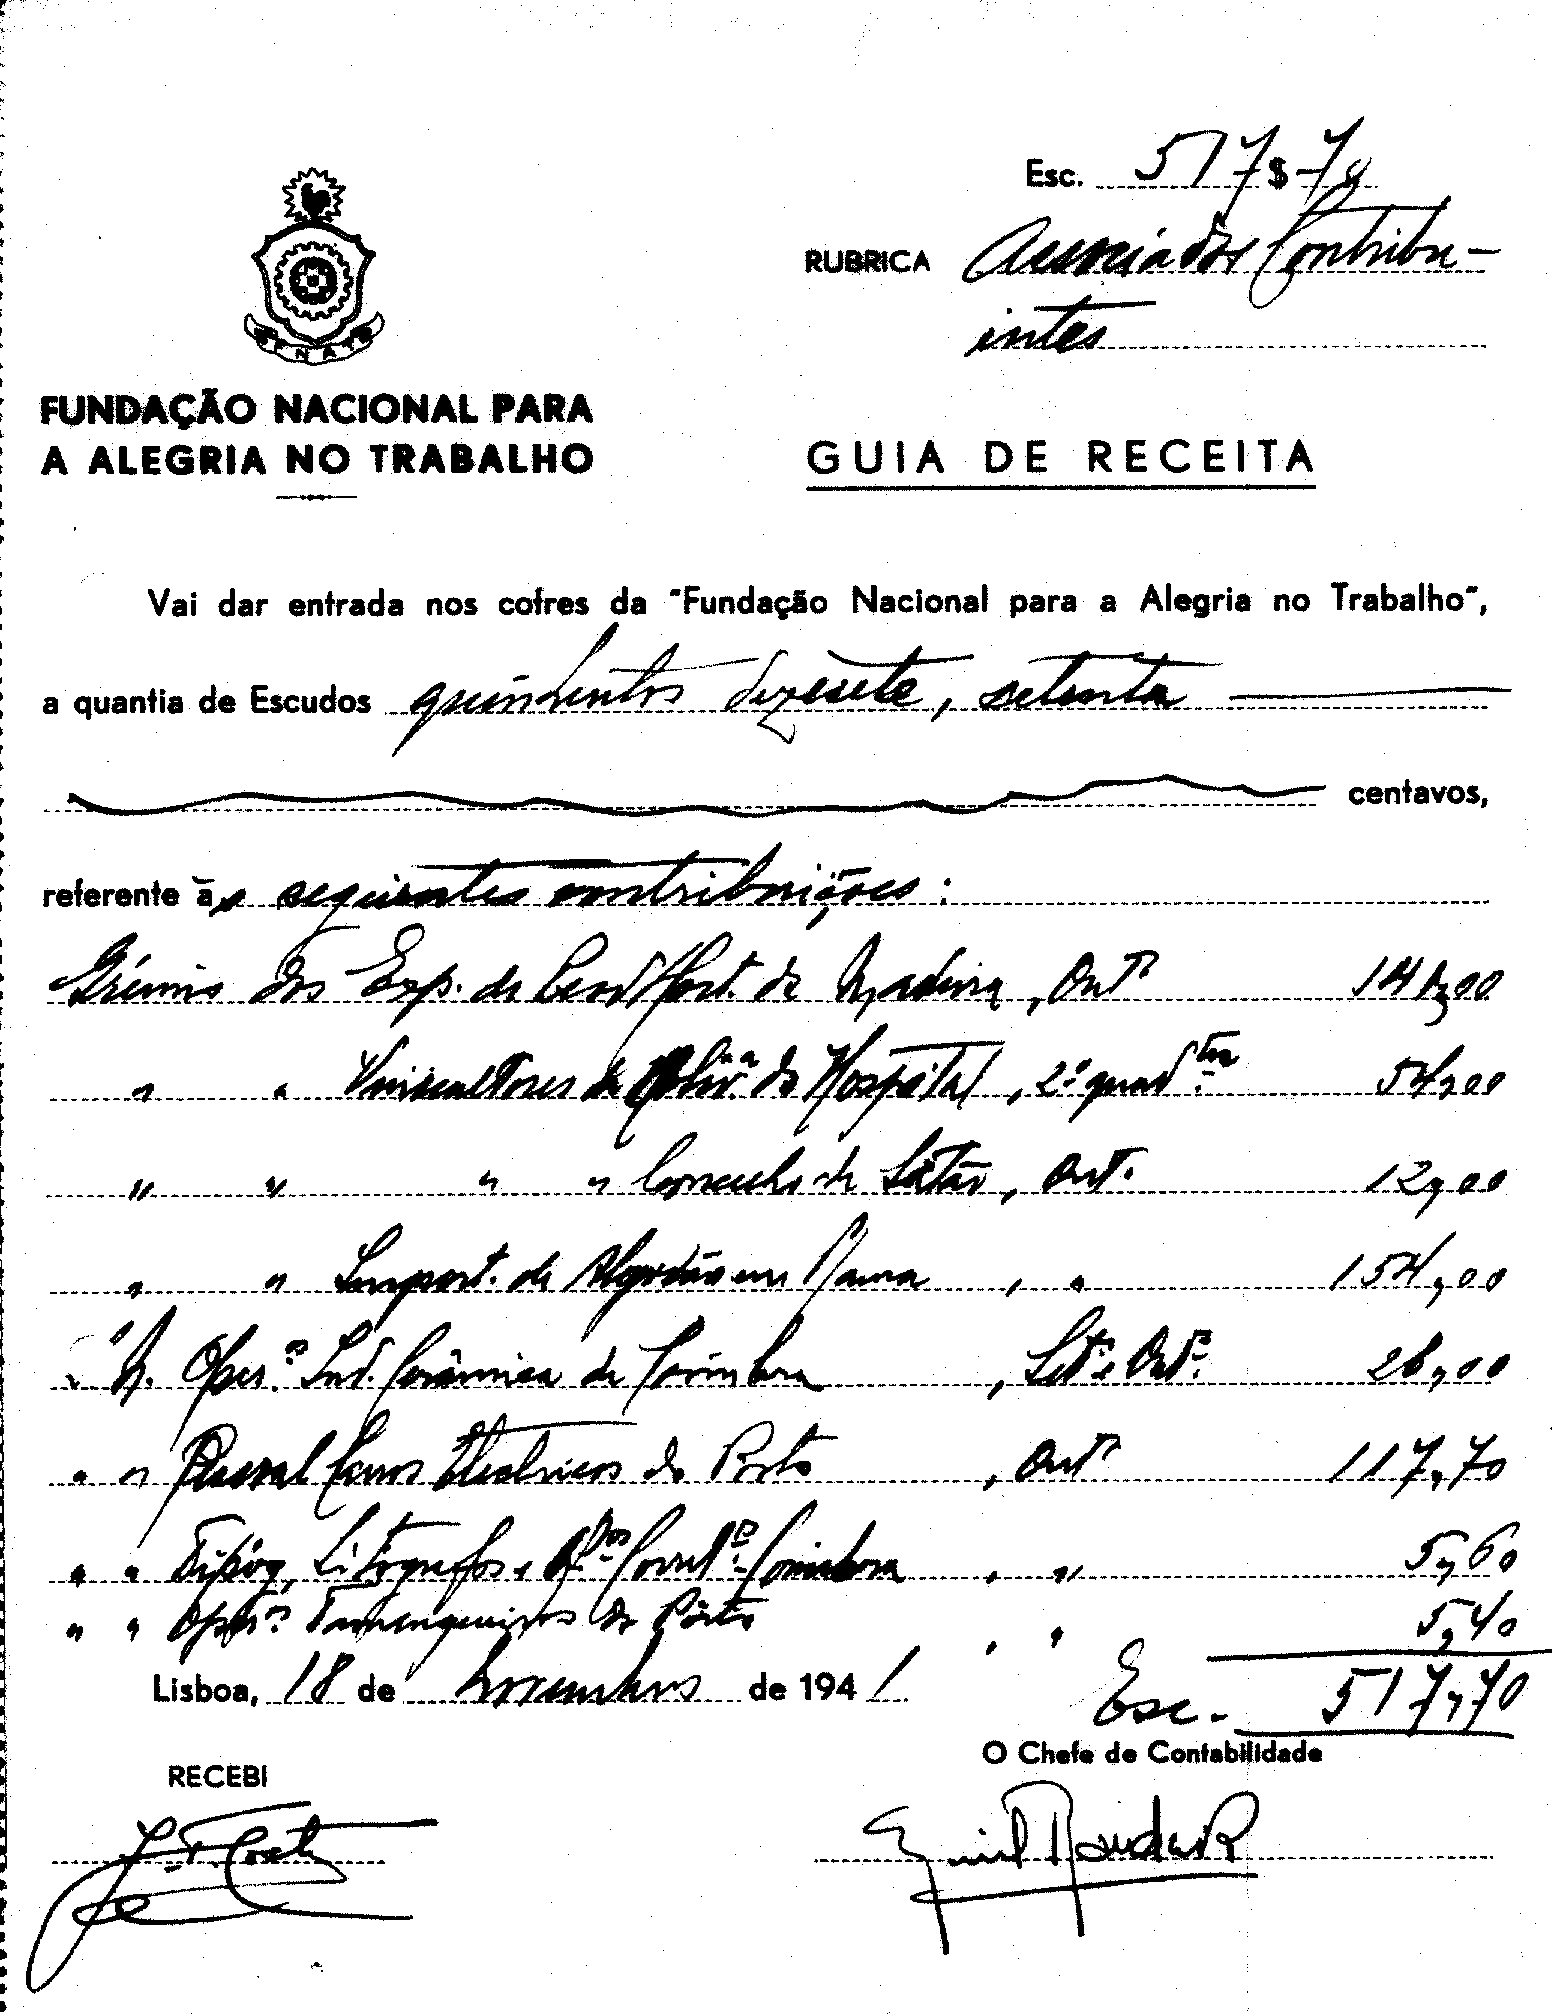 Esc. 517$70
RUBRICA Associados Contribu-
intes
FENAT
FUNDAÇÃO NACIONAL PARA
A ALEGRIA NO TRABALHO
GUIA DE RECEITA
Vai dar entrada nos cofres da "Fundação Nacional para a Alegria no Trabalho",
a quantia de Escudos quinhentos dezesete, setenta
centavos,
referente às seguintes contribuições:
Grémio dos Exp. de Hort. da Madeira, Outº 140,00
" " Vinicultores de Oliv.ª do Hospital, 2º quad.tre 54,00
" " " " Concelho de Sátão, Out. 12,00
" " Import. de Algodão em Rama, " 154,00
N. Oper.os Ind. Cerâmica de Coimbra, Set. e Out. 26,00
" " Pessoal Carros Eléctricos do Porto, Outº 117,70
" " Tipog, Litógrafos e Coimbra, " 5,60
" " Oper.os Tamanqueiros do Pôrto, " 5,40
Lisboa, 18 de Novembro de 1941 Esc. 517,70
O Chefe de Contabilidade
RECEBI